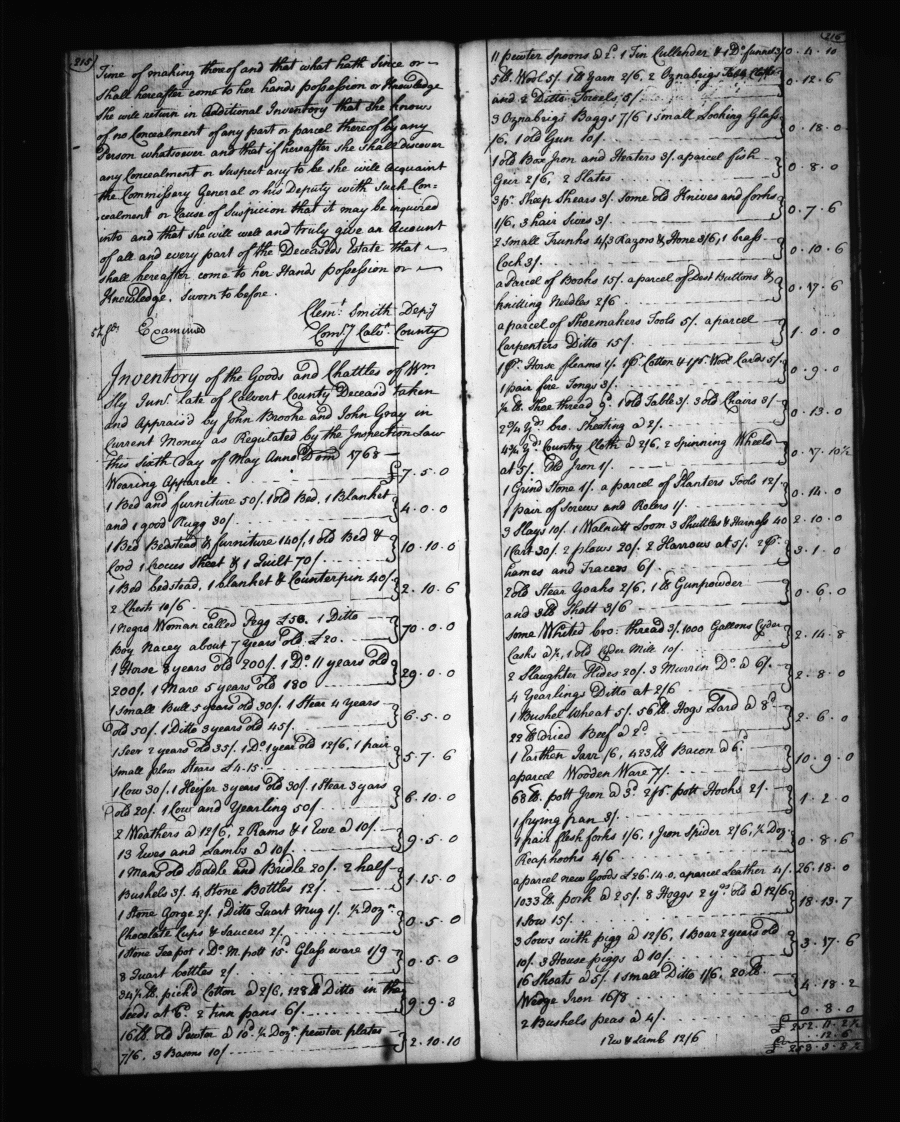 215
Time of making thereof and that what hath Since or
shall hereafter come to her hands possession or Knowledge
She will return in Additional Inventory that she knows
of no Concealment of any part or parcel thereof by any
Person whatsoever and that if hereafter she Shall discover
any Concealment or Suspect any to be she will acquaint
the Commissary General or his Deputy with Such Con=
cealment or Cause of Suspicion that it may be inquired
into and that she will well and truly give an Account
of all and every part of the Deceaseds Estate that
shall hereafter come to her Hands possession or
Knowledge. Sworn to before.
Clemt. Smith Depy
Examined Comy. Calvt. County
Inventory of the Goods and Chattles of Wm
Sly Junr. late of Calvert County Deceasd taken
and Appraisd by John Brooke and John Gray in
Current Money as Regulated by the Inspection Law
this Sixth day of May Anno Dom 1768
Wearing Apparell £7.5.0
1 Bed and furniture 50/. 1 old Bed, 1 Blanket
and 1 good Rugg 30/ 4.0.0
1 Bed Bedstead & furniture 140/, 1 old Bed &
Cord 1 Crocus Sheet & 1 Quilt 70/ 10.10.0
1 Bed bedstead, 1 blanket & Counterpin 40/
2 Chests 10/6 2.10.6
1 Negro Woman called Pegg £50. 1 Ditto
Boy Nacey about 7 years old £20. 70.0.0
1 Horse 8 years old 200/. 1 Do. 11 years old
200/. 1 Mare 5 years old 180 29.0.0
1 small Bull 5 years old 30/. 1 Stear 4 years
Old 50/. 1 Ditto 3 years old 45/. 6.5.0
1 Steer 2 years old 35/. 1 Do. 1 year old 12/6, 1 pair
small plow Stears £4.15. 5.7.6
1 Cow 30/. 1 Heifer 3 years old 30/. 1 Stear 3 yars
old 20/. 1 Cow and Yearling 50/. 6.10.0
2 Weathers a 12/6, 2 Rams & 1 Ewe a 10/.
13 Ewes and Lambs a 10/. 9.5.0
1 Mans old Saddle and Bridle 20/. 2 half
Bushels 3/. 4 Stone Bottles 12/. 1.15.0
1 Stone Gorge 2/. 1 Ditto Quart Mug 1/. ½ Dozn.
Chocolate Cups & Saucers 2/. 0.5.0
1 Stone Teapot 1 Do. M pott 15d. Glass ware 1/9
8 Quart bottles 2/. 0.5.0
34½ lb. pick'd Cotton a 2/6, 128 lb Ditto in the
Seeds at 6d. 2 pans 6/. 9.9.3
16 lb. old Pewter a 10d. ½ Dozn. pewter plates
7/6, 3 Basons 10/. 2.10.10
216
11 pewter Spoons a 2d. 1 Tin Cullender & 1 Do. funnel 3/ 0.4.10
5 lb. Wool 5/. 1 lb Yarn 2/6, 2 Oznabrigs Table Cloths
and 2 Ditto Towels, 5/. 0.12.6
3 Oznabrigs Baggs 7/6 1 small Looking Glass
/6, 1 old Gun 10/. 0.18.0
1 old Box Iron and Heaters 3/. a parcel fish
Geir 2/6, 2 Slates 0.8.0
3 pr. Sheep Shears 3/. Some old Knives and forks
1/6, 3 hair Sives 3/. 0.7.6
2 Small Trunks 4/ 3 Razors & Hone 3/6, 1 brass
Cock 3/. 0.10.6
a Parcel of Books 15/. a parcel of Best Buttons &
knitting Needles 2/6 0.17.6
a parcel of Shoemakers Tools 5/. a parcel
Carpenters Ditto 15/. 1.0.0
1 pr. Horse fleams 1/. 1 pr. Cotton & 1 pr. Wool Cards 5/.
1 pair fire Tongs 3/. 0.9.0
½ lb. Shoe thread 1 old Table 3/. 3 old Chairs 3/
2¾ yds bro. Sheeting a 2/. 0.13.0
4¾ yds. Country Cloth a 2/6, 2 Spinning Wheels
at 5/. Old Iron 1/. 0.17.10½
1 Grind Stone 1/. a parcel of Planters Tools 12/.
1 pair of Screws and Rolers 1/. 0.14.0
3 Slays 10/. 1 Walnutt Loom 3 Shuttles & Harness 40 2.10.0
1 Cart 30/. 2 plows 20/. 2 Harrows at 5/. 2 pr.
hames and Traces 6/. 3.1.0
2 old Stear Yoaks 2/6, 1 lb Gunpowder
and 3 lb Shott 3/6 0.6.0
Some Whited bro. thread 3/. 1000 Gallons Cyder
Casks a ½, 1 old Cyder Mill 10/. 2.14.8
2 Slaughter Hides 20/. 3 Murrin Do. a 6/.
4 Yearlings Ditto at 2/6 2.8.0
1 Bushel Wheat 5/. 56 lb. Hogs Lard a 8d.
22 lb dried Beef a 2d. 2.6.0
1 Earthen Jarr /6, 423 lb Bacon a 6d.
a parcel Wooden Ware 7/. 10.9.0
68 lb. pott Iron a 3d. 2 pr. pott Hooks 2/.
1 frying pan 3/. 1.2.0
1 pair flesh forks 1/6, 1 Iron Spider 2/6, ½ Doz.
Reaphooks 4/6 0.8.6
a parcel new Goods £26.14.0. a parcel Leather 4/. 26.18.0
1033 lb. pork a 25/. 8 Hoggs 2 yrs. old a 12/6
1 Sow 15/. 18.13.7
3 Sows with pigg a 12/6, 1 Boar 2 years old
10/. 3 House piggs a 10/. 3.17.6
16 Shoats a 5/. 1 small Ditto 1/6, 20 lb
Wedge Iron 16/8 4.18.2
2 Bushels peas a 4/. 0.8.0
£252.11.2½
1 Ew & Lamb 12/6 .12.6
£253.3.8½